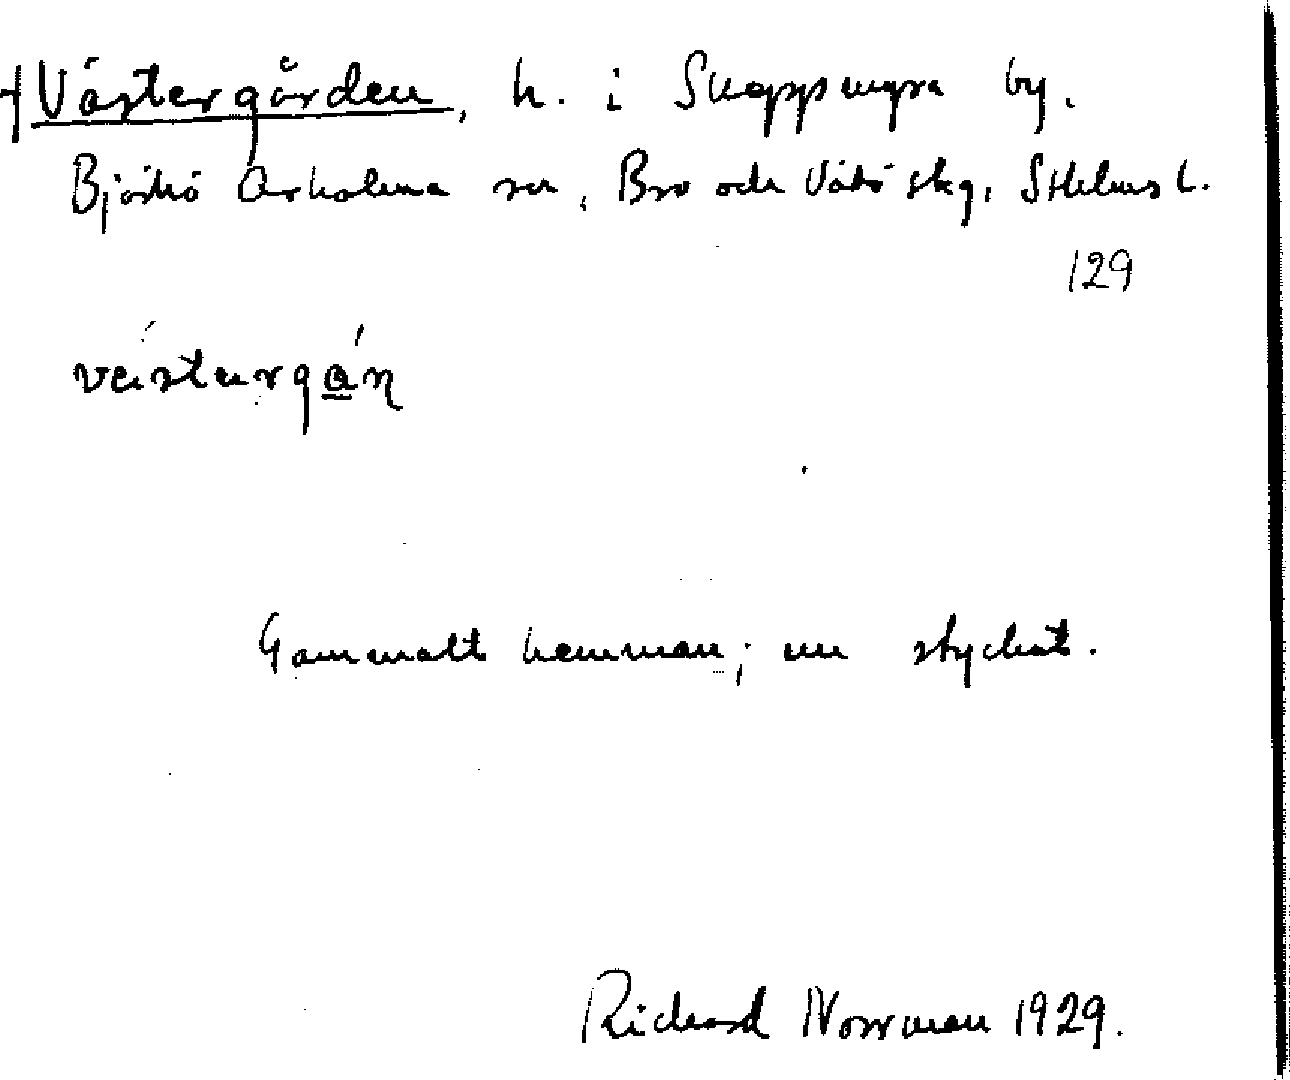 †Västergården, h. i Skeppsmyra by.
Björkö Arholma sn, Bro och Vätö skg, Sthlms l.
129
Gammalt hemman; nu styckat.
Richard Norrman 1929.